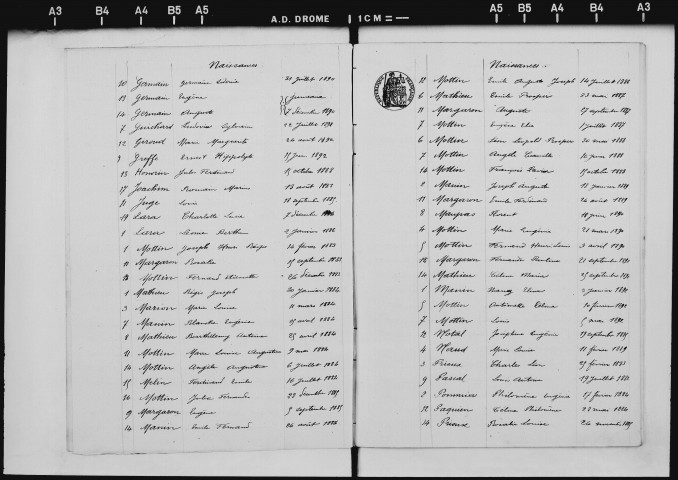 A3 B4 A4 B5 A5 A.D. DROME 1CM = A5 B5 A4 B4 A3
Naissances
10 Germain 21 Juillet 1890
13 Germain Eugène Jumeaux
14 Germain Auguste 7 Décembre 1890
7 Guichard Ludovic Sylvain 22 Juillet 1891
12 Giroud Marie Marguerite 24 août 1892
3 Greffe Ernest Hippolyte 1892
13 Honorin Jules Ferdinand 15 octobre 1888
17 Joachim Romain Marin 13 août 1882
11 Juge Louis 18 septembre 1885
19 Lara Charlotte 7 Décembre
1 Laror Léonie Berthe 2 Janvier 1886
1 Mottin Joseph Henri 14 février 1883
11 Margaron Rosalie 15 septembre 1883
Mottin Fernand 24 décembre 1883
1 Mathieu Régis Joseph 30 Janvier 1884
3 Marion Marie Louise 11 mars 1884
7 Manin Blanche Eugénie 15 avril 1884
8 Mathieu Barthélemy Antoine 25 avril 1884
11 Mottin Marie Louise Augustine 9 mai 1884
14 Mottin Angèle Augustine 6 Juillet 1884
15 Melin Ferdinand Emile 16 Juillet 1884
16 Mottin Jules Fernand 22 décembre
9 Margaron Eugène 5 septembre 1885
14 Manin Emile Fernand 24 août 1886
Naissances.
12 Mottin Emile August Joseph 14 Juillet 1886
6 Mathieu Emile Prosper 23 mai 1887
11 Margaron Auguste 27 septembre 1887
7 Mottin Eugène Elie 1 Juillet 1887
6 Mottin Léon Léopold Prosper 30 mai 1888
7 Mottin Angèle Camille 10 juin 1888
14 Mottin François Xavier 15 octobre 1888
2 Joseph Auguste 18 février 1889
11 Margaron Emile Ferdinand 24 août 1889
8 Maupas Florent 18 Juin 1890
4 Mottin Marie Eugénie 21 mars 1890
5 Mottin Fernand Henri Louis 3 avril 1890
12 Margaron Fernande Pauline 21 septembre 1890
14 Mathieu Célina Maria 25 septembre 1891
1 Manin Nancy Elisa 2 Janvier 1891
5 Mottin Antoinette Célina 10 février 1892
7 Mottin Louis 5 mai 1892
12 Notal Joséphine Eugénie 29 septembre 1885
4 Naud Marie Louise 11 février 1889
3 Prieux Charles Léon 25 février 1883
9 Pascal Louis Antoine 19 Juillet 1883
2 Pommier Philomène Eugénie 17 février 1884
12 Paquien Célina Philomène 23 mai 1884
14 Prieux Rosalie Louise